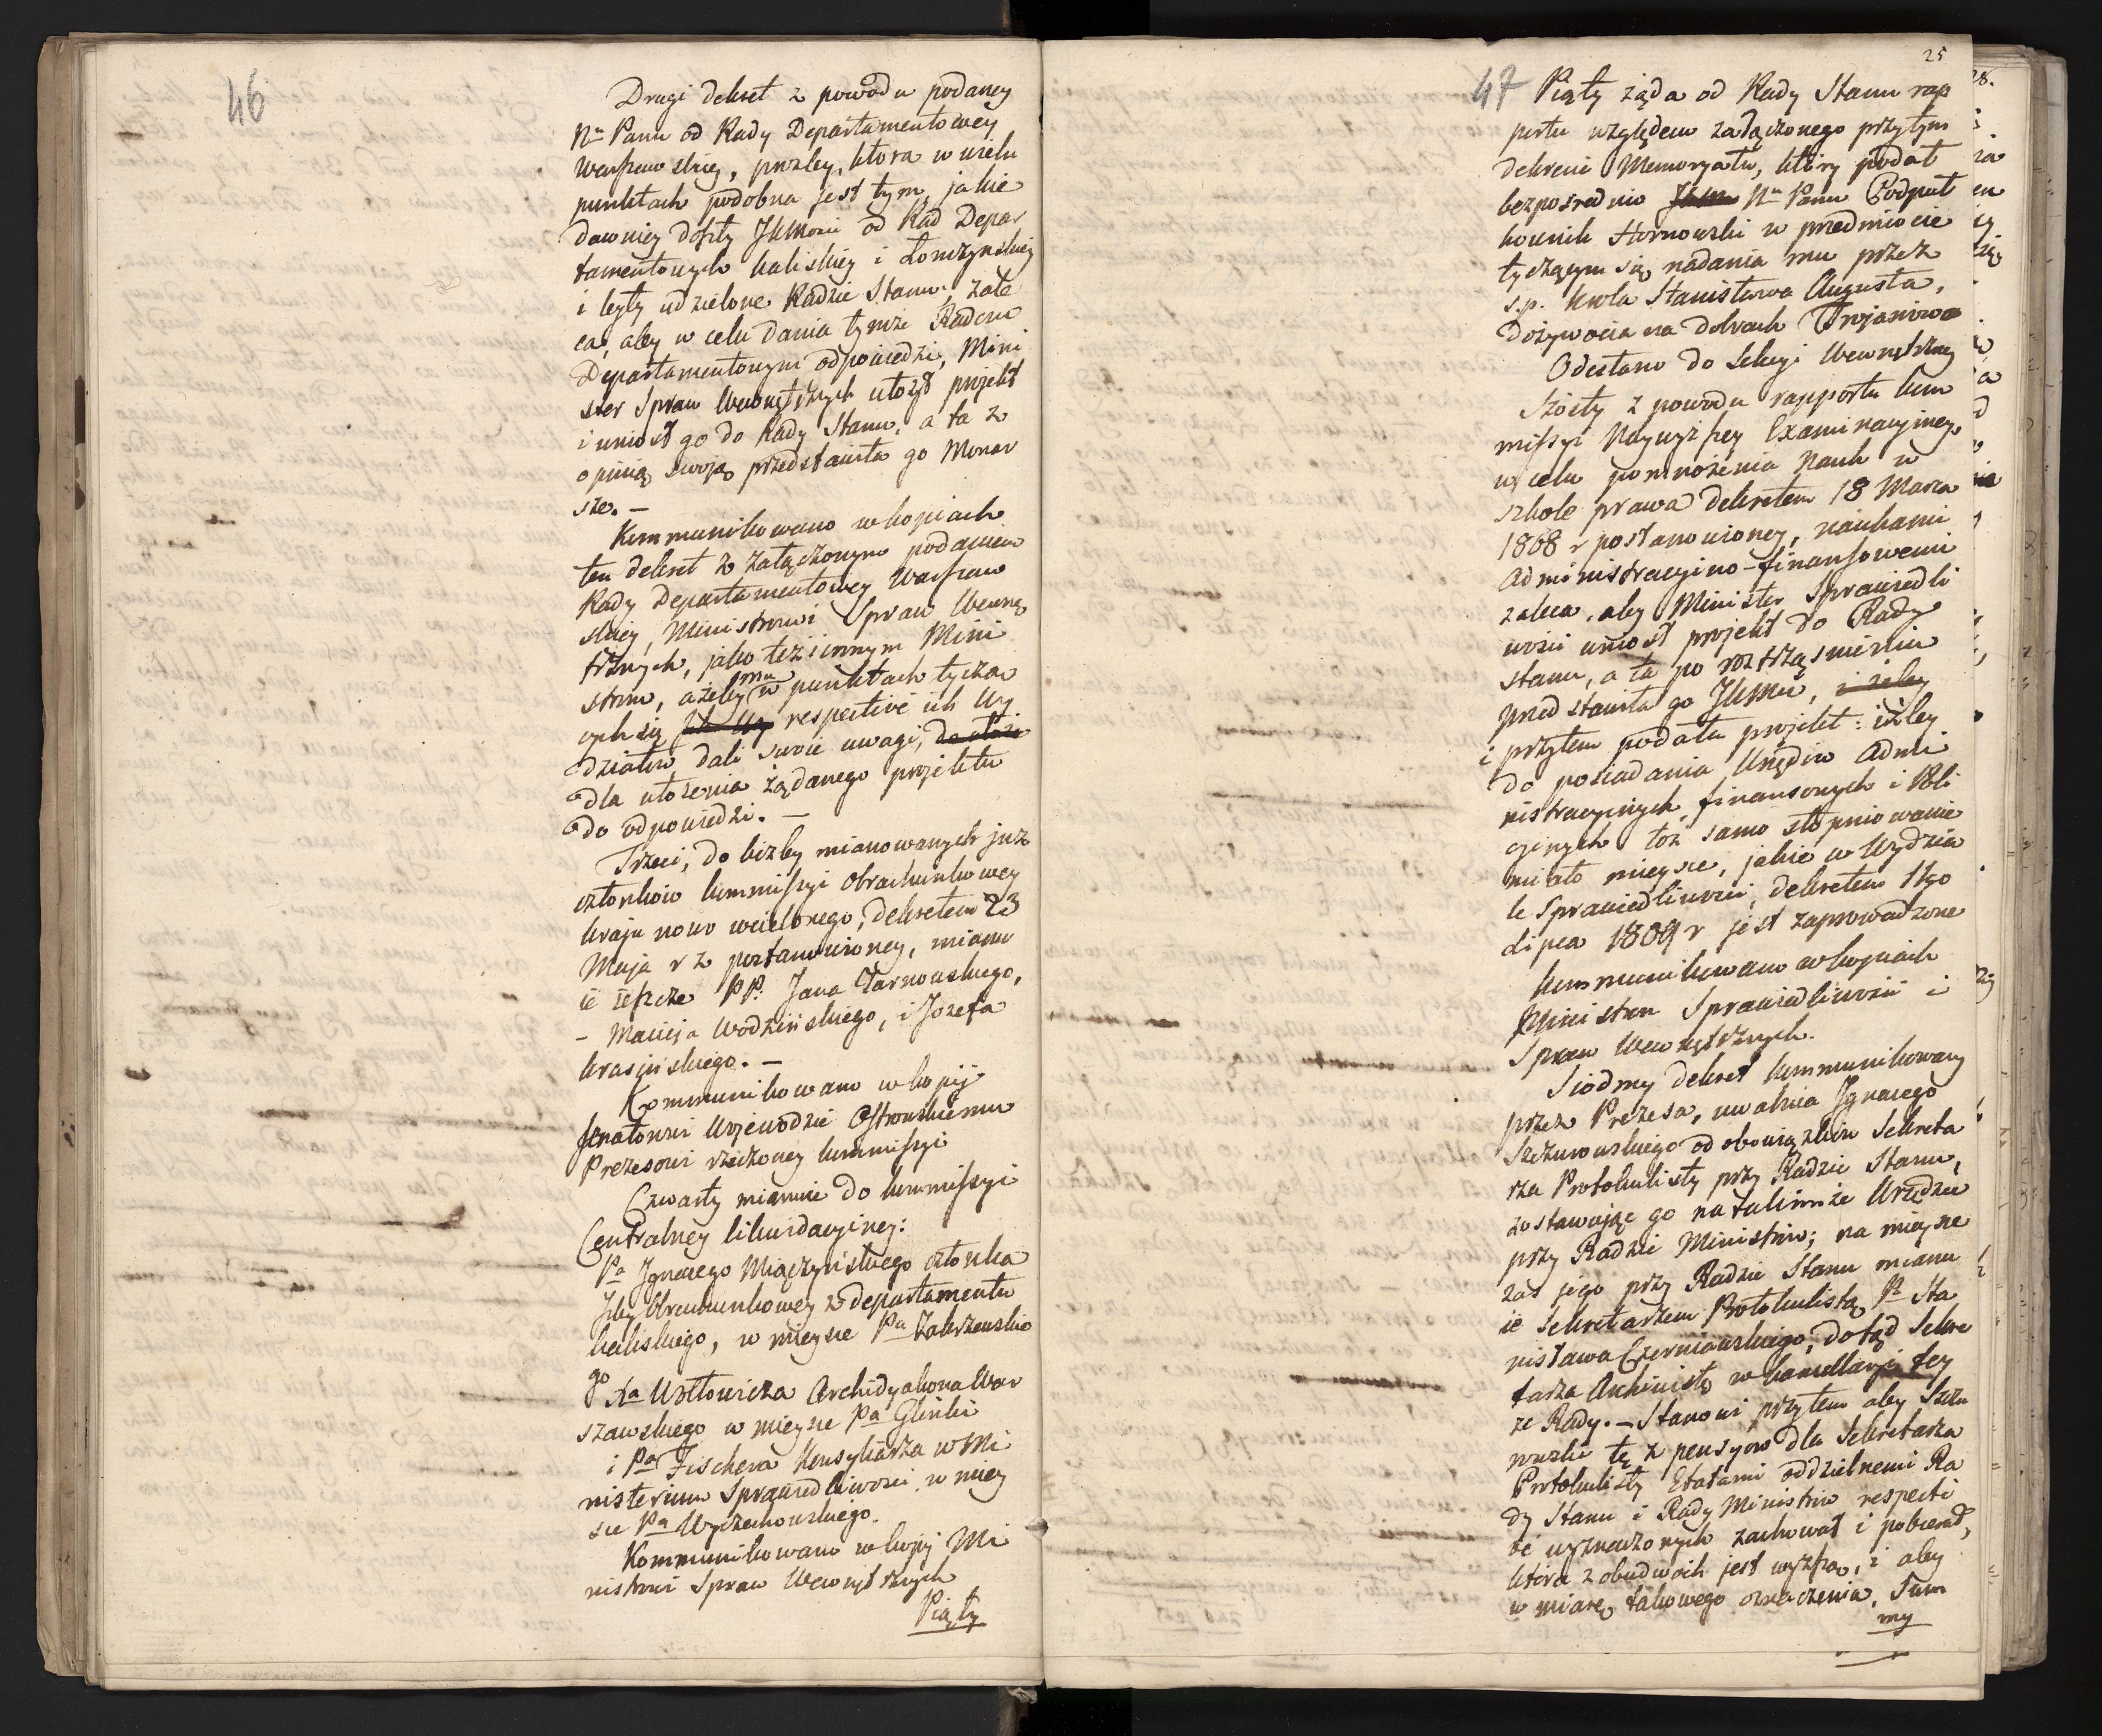 46
Drugi dekret z powodu podaney
Nu Panu od Rady Departamentowey
Warszawskiey, prozby, ktora w wielu
punktach podobna jest tym, jakie
dawniey doszły JKMości od Rad Depar
tamentowych kaliskiey i Łomżynskiey
i były udzielone Radzie Stanu, zale
ca, aby w celu dania tymże Radom
Departamentowym odpowiedzi, Mini
ster Spraw Wewnętrznych ułożył projekt
i uniosł go do Rady Stanu, a ta z
opinią swoją przedstawiła go Monar
sze. —
Kommunikowano w kopiach
ten dekret z załączonym podaniem
Rady Departamentowey Warszaw
skiey, Ministrowi Spraw Wewnę
trznych, jako też i innym Mini
strom, ażeby mu w punktach tycząc
ych się respective ich Wy
działów dali swoie uwagi,
dla ułożenia żądanego projektu
do odpowiedzi. —
Trzeci, do liczby mianowanych już
członków kommissyi obrachunkowey
kraju nowo wcielonego, dekretem 23
Maja r z postanowioney, mianu
ie ieszcze PP. Jana Tarnowskiego,
– Macieja Wodzińskiego, i Jozefa
krasińskiego. —
Kommunikowano w kopij
Senatorowi Wojewodzie Ostrowskiemu
Prezesowi rzeczoney kommissyi
Czwarty mianuie do kommissyi
Centralney likwidacyiney:
Pa Jgnacego Miączyńskiego członka
Jzby Obrachunkowey z departamentu
kaliskiego, w mieysce Pa Zakrzewskie
go Xa Wołłowicza Archidyakona War
szawskiego w mieysce Pa Glinki
i Pa Fischera Konsyliarza w Mi
nisterium Sprawiedliwości w miey
sce Pa Wyczechowskiego.
Kommunikowano w kopij Mi
nistrowi Spraw Wewnętrznych
Piąty
25
47
Piąty żąda od Rady Stanu rap
portu względem załączonego przy tym
dekrecie Memoryału, który podał
bezpośrednio JKMci Nu Panu Podpuł
kownik Hornowski w przedmiocie
tyczącym się nadania mu przez
s.p. krola Stanisława Augusta,
Dożywocia na dobrach Trojanowo
Odesłano do Sekcyi Wewnętrzney
Szósty z powodu rapportu kom
missyi Naywyższey Examinacyiney,
w celu pomnożenia Nauk w
szkole prawa dekretem 18 Marca
1808 r postanowioney, naukami
administracyino-finansowemi
zaleca, aby Minister Sprawiedli
wości uniosł projekt do Rady
stanu, a ta po roztrząśnieniu
przedstawiła go JKMci, i żeby
i przytem podała projekt: iżby
do posiadania Urzędów admi
nistracyinych, finansowych i Poli
cyinych toż samo stopniowanie
miało mieysce, jakie w Wydzia
le Sprawiedliwości, dekretem 11go
Lipca 1809 r jest zaprowadzone
kommunikowano w kopiach
Ministrom Sprawiedliwości i
Spraw Wewnętrznych.
Siodmy dekret kommunikowany
przez Prezesa, uwalnia Jgnacego
Szczurowskiego od obowiązków Sekreta
rza Protokulisty przy Radzie Stanu,
zostawując go na takimże Urzędzie
przy Radzie Ministrów; na mieysce
zaś jego przy Radzie Stanu mianu
ie Sekretarzem Protokulistą Pa Sta
nisława Czerniawskiego, dotąd Sekre
tarza Archiwistę w kancellaryi tey
że Rady. – Stanowi przytem aby Szczu
rowski tę z pensyow dla Sekretarza
Protokulisty Etatami oddzielnemi Ra
dy Stanu i Rady Ministrów respecti
ve wyznaczonych zachował i pobierał,
która z obudwóch jest wyższa, i aby
w miarę takowego oznaczenia, Sum
my